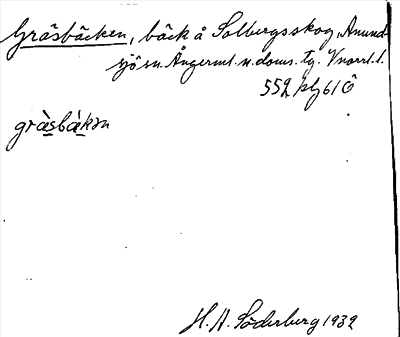 Gräsbäcken, bäck å Solbergsskog, Anund-
sjö sn. Ångerml. n. doms. tg. Vnorrl. l.
552 kbg 61 Ö
grä̀sbä̀kən
H. A. Söderberg 1932